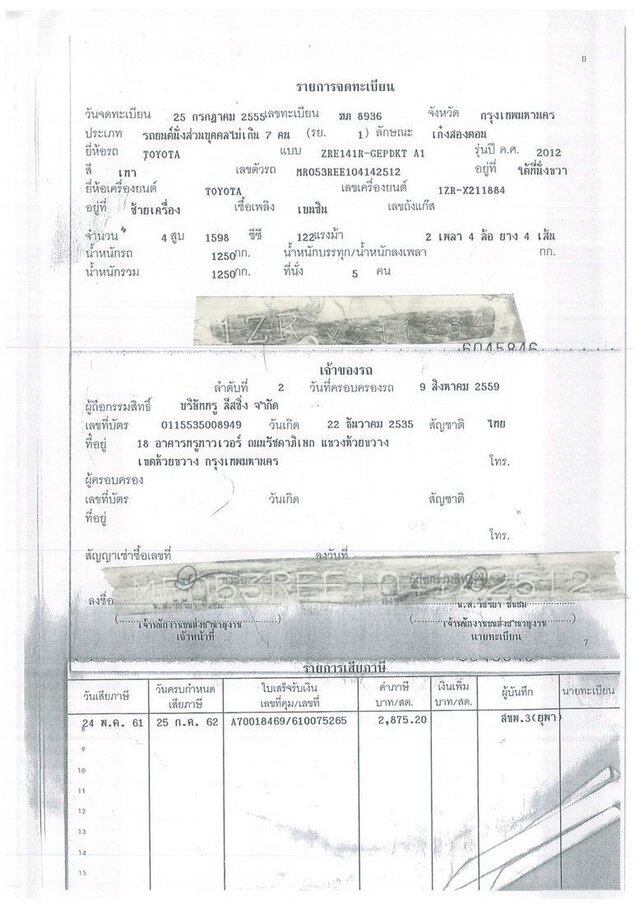 6
รายการจดทะเบียน
วันจดทะเบียน 25 กรกฎาคม 2555 เลขทะเบียน ฆภ 8936 จังหวัด กรุงเทพมหานคร
ประเภท รถยนต์นั่งส่วนบุคคลไม่เกิน 7 คน (รย. 1) ลักษณะ เก๋งสองตอน
ยี่ห้อรถ TOYOTA แบบ ZRE141R-GEPDKT A1 รุ่นปี ค.ศ. 2012
สี เทา เลขตัวรถ MR053REE104142512 อยู่ที่ ใต้ที่นั่งขวา
ยี่ห้อเครื่องยนต์ TOYOTA เลขเครื่องยนต์ 1ZR-X211884
อยู่ที่ ซ้ายเครื่อง เชื้อเพลิง เบนซิน เลขถังแก๊ส
จำนวน 4 สูบ 1598 ซีซี 122 แรงม้า 2 เพลา 4 ล้อ ยาง 4 เส้น
น้ำหนักรถ 1250 กก. น้ำหนักบรรทุก/น้ำหนักลงเพลา กก.
น้ำหนักรวม 1250 กก. ที่นั่ง 5 คน
1ZR X211884
6045846
เจ้าของรถ
ลำดับที่ 2 วันที่ครอบครองรถ 9 สิงหาคม 2559
ผู้ถือกรรมสิทธิ์ บริษัททรู ลีสซิ่ง จำกัด
เลขที่บัตร 0115535008949 วันเกิด 22 ธันวาคม 2535 สัญชาติ ไทย
ที่อยู่ 18 อาคารทรูทาวเวอร์ ถนนรัชดาภิเษก แขวงห้วยขวาง
เขตห้วยขวาง กรุงเทพมหานคร โทร.
ผู้ครอบครอง
เลขที่บัตร วันเกิด สัญชาติ
ที่อยู่
โทร.
สัญญาเช่าซื้อเลขที่ ลงวันที่
ผู้ถือกรรมสิทธิ์
ลงชื่อ ลงชื่อ
(เจ้าพนักงานขนส่งชำนาญงาน) (เจ้าพนักงานขนส่งชำนาญงาน)
เจ้าหน้าที่ นายทะเบียน
7
รายการเสียภาษี
วันเสียภาษี วันครบกำหนดเสียภาษี ใบเสร็จรับเงิน เลขที่คุม/เลขที่ ค่าภาษี บาท/สต. เงินเพิ่ม บาท/สต. ผู้บันทึก นายทะเบียน
24 พ.ค. 61 25 ก.ค. 62 A70018469/610075265 2,875.20 สขพ.3(ยุพา)
9
10
11
12
13
14
15